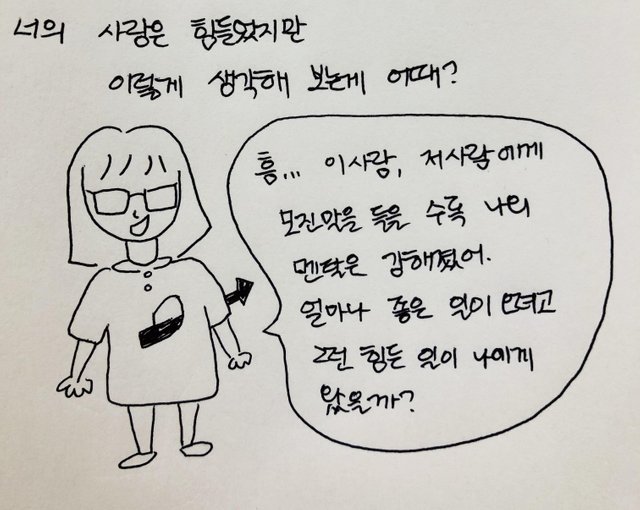 너의 사랑은 힘들었지만
이렇게 생각해 보는게 어때?
흥... 이사람, 저사람에게
모진말을 들을 수록 나의
멘탈은 강해졌어.
얼마나 좋은 일이 오려고
그런 힘든 일이 나에게
왔을까?